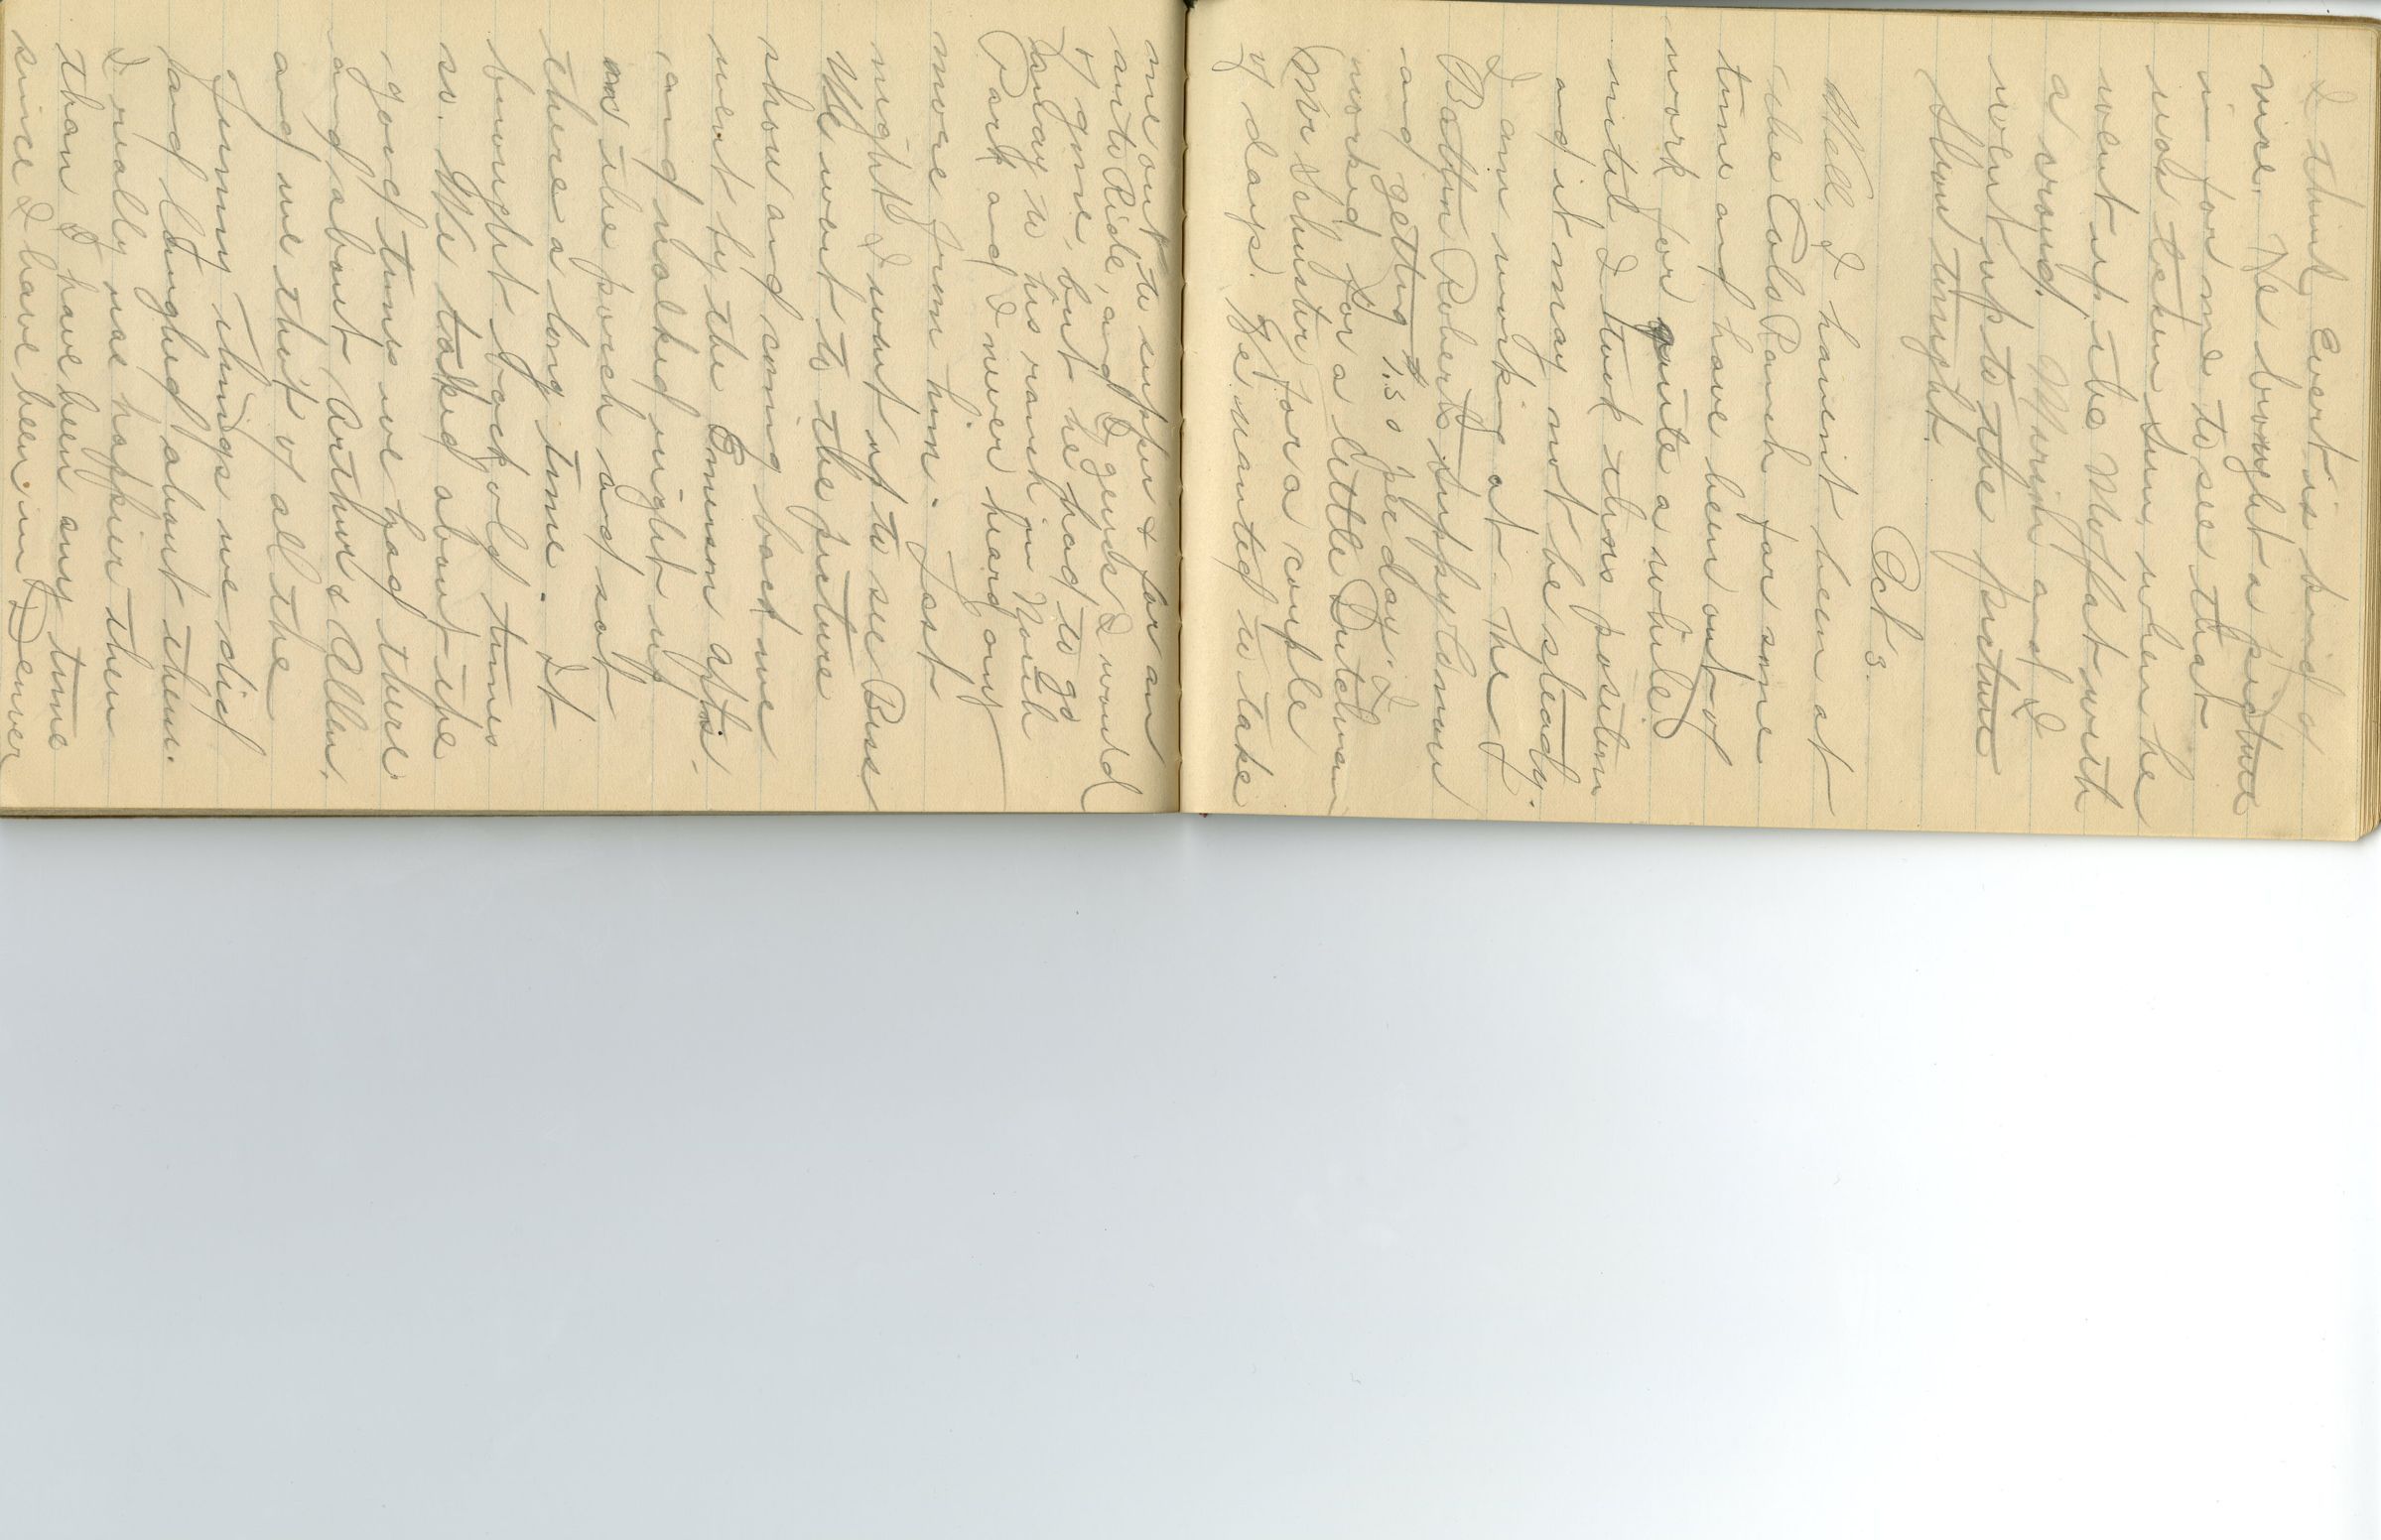 I think Evert is kind of
nice. He brought a picture
in for me to see that
was taken Sun. when he
went up the Moffat with
a crowd. Marish and I
went up to the picture
Show tonight.
Oct 3.
Well, I havent been at
the Colo Ranch for some
time and have been out of
work for quite a while
until I took this position
and it may not be steady.
I am working at the
Battin Roberts Supply Comm
and getting $1.50 per day. I
worked for a little Dutchman
(Mr Schustr) for a couple
of days. He wanted to take
me out to supper & for an
auto Ride, and I guess I would
of gone, but he had to go
away to his ranch in North
Park and I never heard any
more from him. Last
night I went up to see Bess
We went to the picture
show and coming back we
went by the Emerson apts.
and walked right up
on the porch and sat
there a long time. It
brought back old times
so. We talked about the
good times we had there
and about Arthur & Allen,
and we thot of all the
funny things we did
and laughed about them.
I really was happier then
than I have been any time
since I have been in Denver